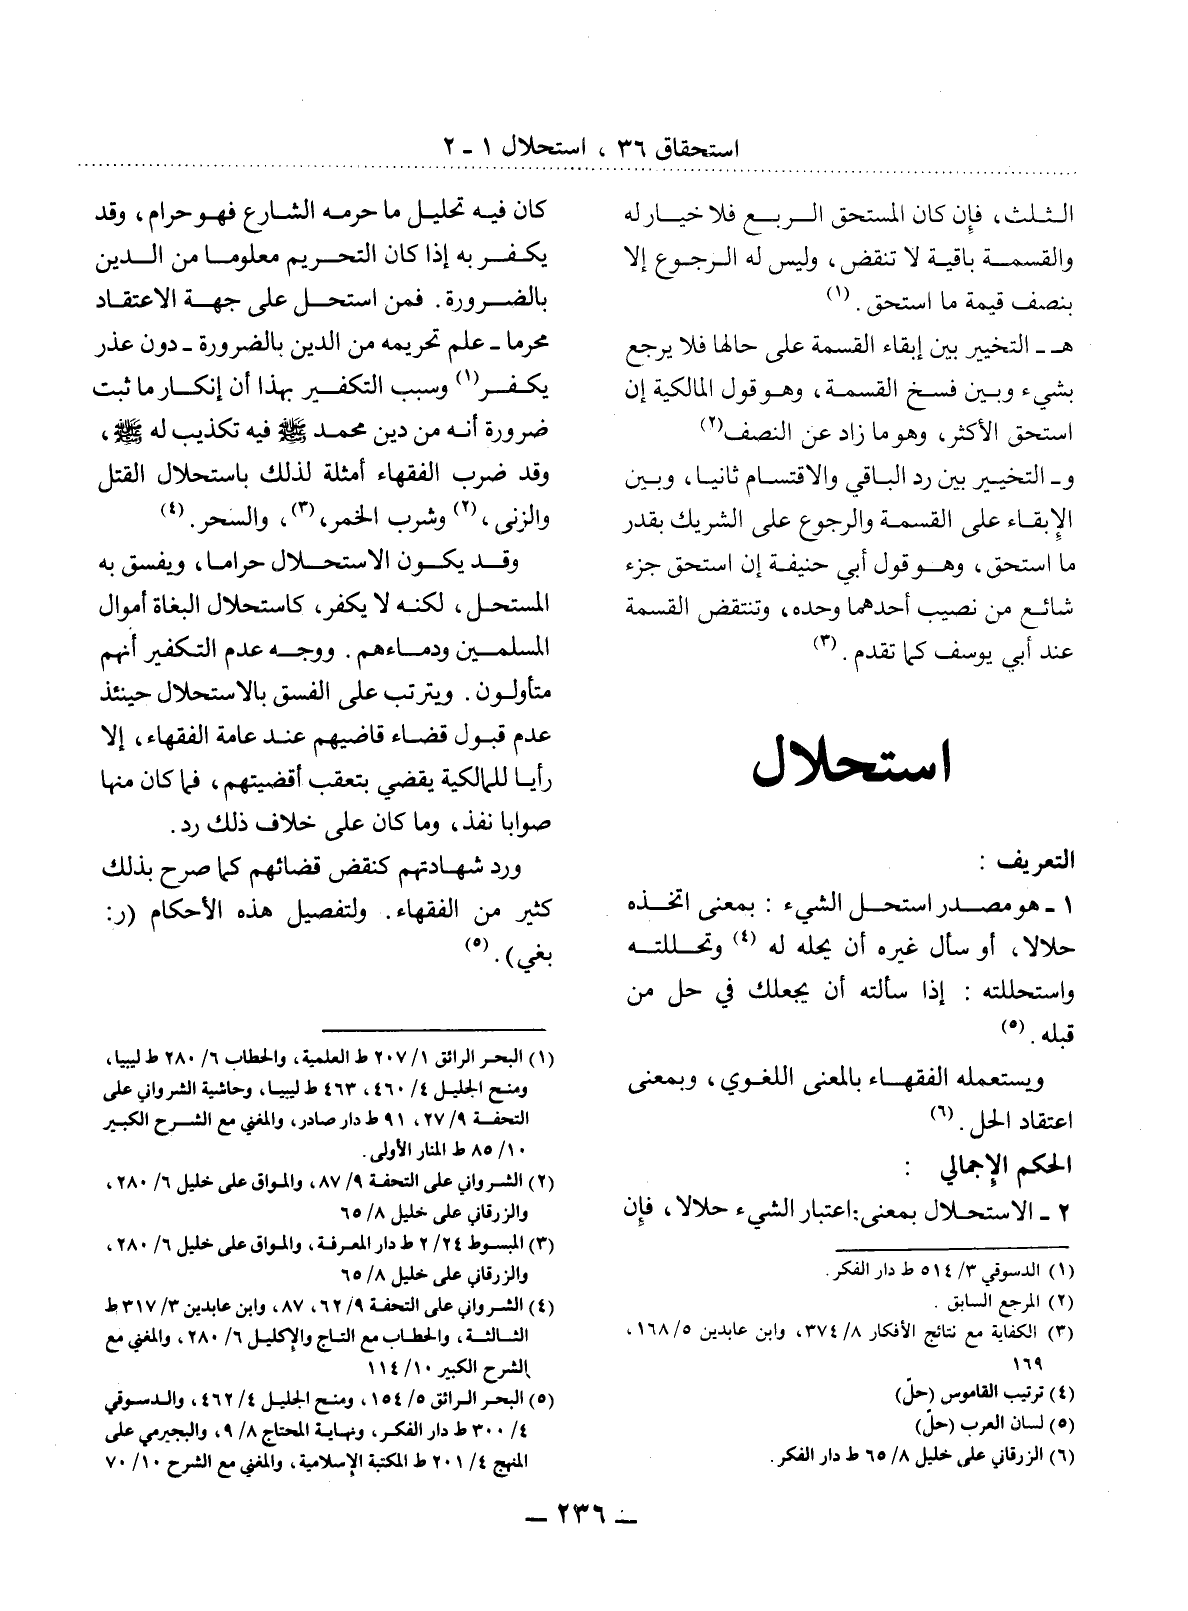 استحقاق ٣٦ ، استحلال ١ - ٢
الثلث، فإن كان المستحق الربع فلا خيار له
والقسمة باقية لا تنقض، وليس له الرجوع إلا
بنصف قيمة ما استحق . (١)
هـ ـ التخيير بين إبقاء القسمة على حالها فلا يرجع
بشيء وبين فسخ القسمة، وهو قول المالكية إن
استحق الأكثر، وهو ما زاد عن النصف(٢)
و ـ التخيير بين رد الباقي والاقتسام ثانيا، وبين
الإبقاء على القسمة والرجوع على الشريك بقدر
ما استحق، وهو قول أبي حنيفة إن استحق جزء
شائع من نصيب أحدهما وحده، وتنتقض القسمة
عند أبي يوسف كما تقدم . (٣)
استحلال
التعريف :
١ ـ هو مصدر استحل الشيء : بمعنى اتخذه
حلالا، أو سأل غيره أن يحله له (٤) وتحللته
واستحللته : إذا سألته أن يجعلك في حل من
قبله . (٥)
ويستعمله الفقهاء بالمعنى اللغوي، وبمعنى
اعتقاد الحل . (٦)
الحكم الإجمالي :
٢ ـ الاستحلال بمعنى: اعتبار الشيء حلالا، فإن
(١) الدسوقي ٣/ ٥١٤ ط دار الفكر.
(٢) المرجع السابق .
(٣) الكفاية مع نتائج الأفكار ٨/ ٣٧٤، وابن عابدين ٥/ ١٦٨،
١٦٩
(٤) ترتيب القاموس (حلّ)
(٥) لسان العرب (حلّ)
(٦) الزرقاني على خليل ٨/ ٦٥ ط دار الفكر.
كان فيه تحليل ما حرمه الشارع فهو حرام، وقد
يكفر به إذا كان التحريم معلوما من الدين
بالضرورة . فمن استحل على جهة الاعتقاد
محرما ـ علم تحريمه من الدين بالضرورة ـ دون عذر
يكفر(١) وسبب التكفير بهذا أن إنكار ما ثبت
ضرورة أنه من دين محمد ﷺ فيه تكذيب له ﷺ،
وقد ضرب الفقهاء أمثلة لذلك باستحلال القتل
والزنى،(٢) وشرب الخمر،(٣)، والسحر. (٤)
وقد يكون الاستحلال حراما، ويفسق به
المستحل، لكنه لا يكفر، كاستحلال البغاة أموال
المسلمين ودماءهم . ووجه عدم التكفير أنهم
متأولون. ويترتب على الفسق بالاستحلال حينئذ
عدم قبول قضاء قاضيهم عند عامة الفقهاء، إلا
رأيا للمالكية يقضي بتعقب أقضيتهم، فما كان منها
صوابا نفذ، وما كان على خلاف ذلك رد.
ورد شهادتهم كنقض قضائهم كما صرح بذلك
كثير من الفقهاء. ولتفصيل هذه الأحكام (ر:
بغي) . (٥)
(١) البحر الرائق ١/ ٢٠٧ ط العلمية، والحطاب ٦/ ٢٨٠ ط ليبيا،
ومنح الجليل ٤/ ٤٦٠، ٤٦٣ ط ليبيا، وحاشية الشرواني على
التحفة ٩/ ٢٧، ٩١ ط دار صادر، والمغني مع الشرح الكبير
١٠/ ٨٥ ط المنار الأولى.
(٢) الشرواني على التحفة ٩/ ٨٧، والمواق على خليل ٦/ ٢٨٠،
والزرقاني على خليل ٨/ ٦٥
(٣) المبسوط ٢٤/ ٢ ط دار المعرفة، والمواق على خليل ٦/ ٢٨٠،
والزرقاني على خليل ٨/ ٦٥
(٤) الشرواني على التحفة ٩/ ٦٢، ٨٧، وابن عابدين ٣/ ٣١٧ ط
الثالثة، والحطاب مع التاج والإكليل ٦/ ٢٨٠، والمغني مع
الشرح الكبير ١٠/ ١١٤
(٥) البحر الرائق ٥/ ١٥٤، ومنح الجليل ٤/ ٤٦٢، والدسوقي
٤/ ٣٠٠ ط دار الفكر، ونهاية المحتاج ٨/ ٩، والبجيرمي على
المنهج ٤/ ٢٠١ ط المكتبة الإسلامية، والمغني مع الشرح ١٠/ ٧٠
ـ ٢٣٦ ـ